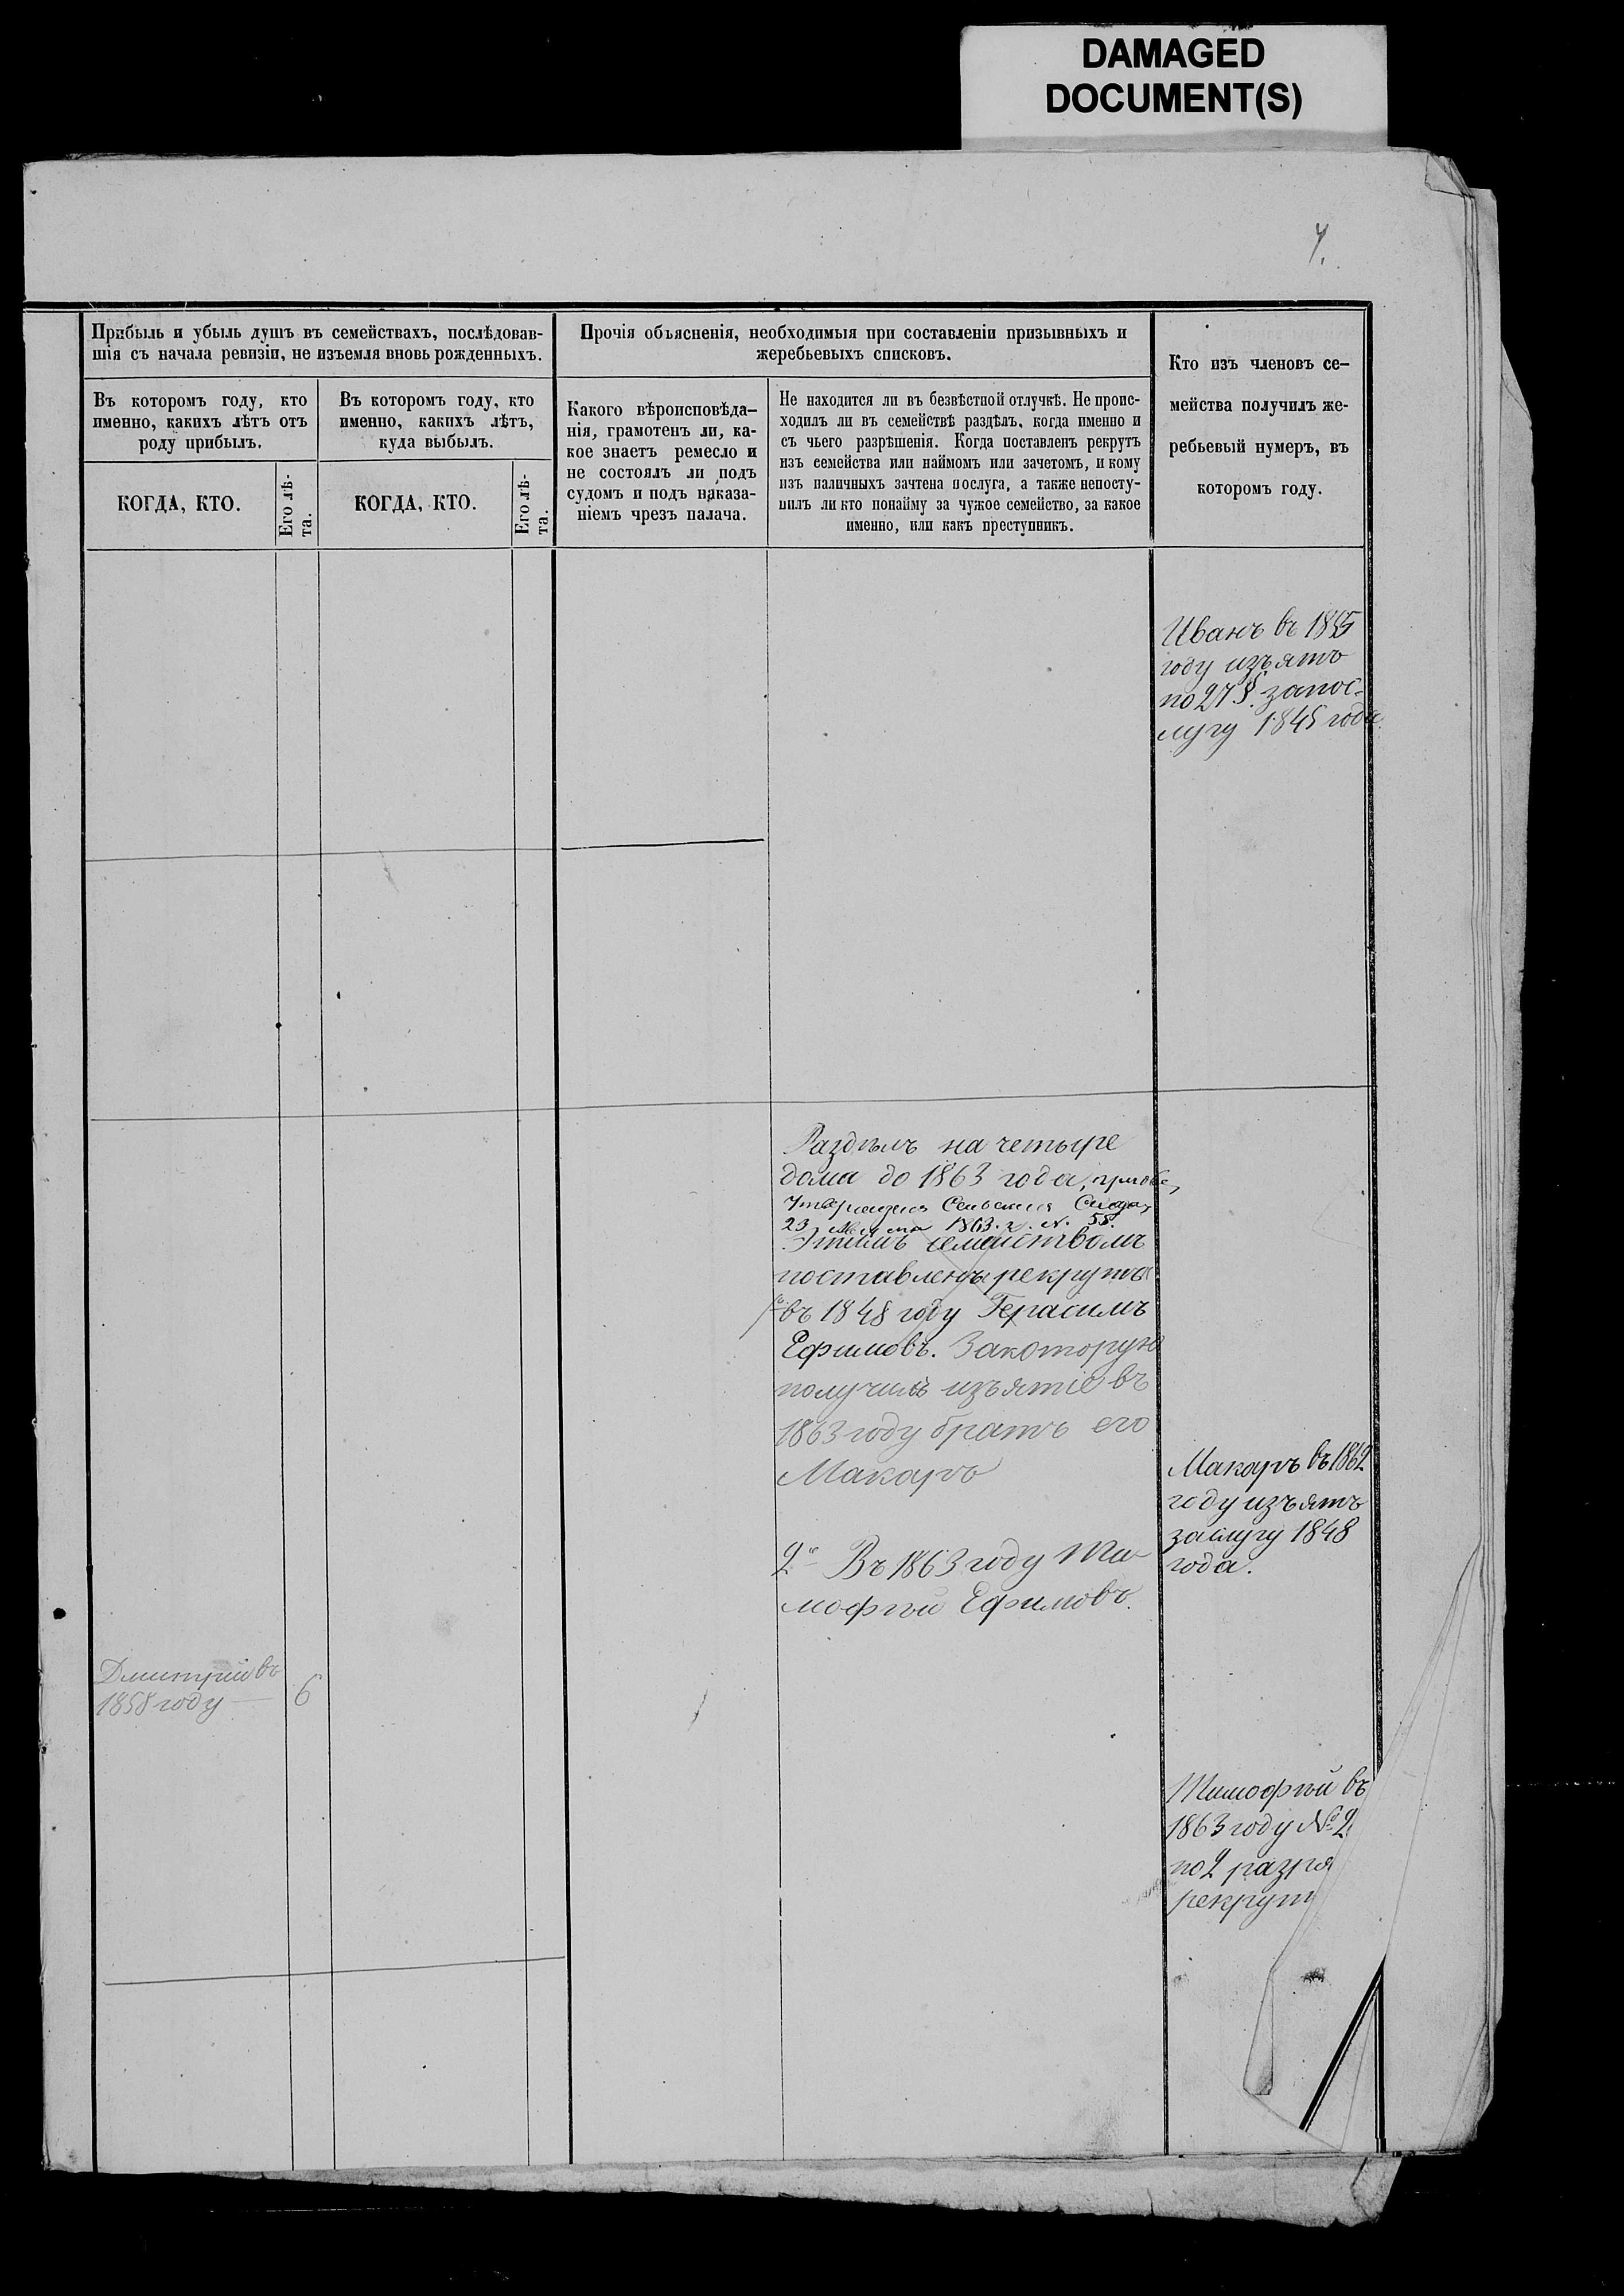 DAMAGED
DOCUMENT(S)
Прибыль и убыль душъ въ семействахъ, послѣдовав-
шія съ начала ревизіи, не изъемля вновь рожденныхъ.
Въ которомъ году, кто
именно, какихъ лѣтъ отъ
роду прибылъ.
КОГДА, КТО.
Его лѣ-
та.
Въ которомъ году, кто
именно, какихъ лѣтъ,
куда выбылъ.
КОГДА, КТО.
Его лѣ-
та.
Прочія объясненія, необходимыя при составленіи призывныхъ и
жеребьевыхъ списковъ.
Какого вѣроисповѣда-
нія, грамотенъ ли, ка-
кое знаетъ ремесло и
не состоялъ ли подъ
судомъ и подъ наказа-
ніемъ чрезъ палача.
Не находится ли въ безвѣстной отлучкѣ. Не проис-
ходилъ ли въ семействѣ раздѣлъ, когда именно и
съ чьего разрѣшенія. Когда поставленъ рекрутъ
изъ семейства или наймомъ или зачетомъ, и кому
изъ наличныхъ зачтена послуга, а также непосту-
пилъ ли кто понайму за чужое семейство, за какое
именно, или какъ преступникъ.
Кто изъ членовъ се-
мейства получилъ же-
ребьевый нумеръ, въ
которомъ году.
Иванъ въ
году изъятъ
по 27 §. запос-
лугу 1845 года.
Раздѣлъ на четыре
дома до 1863 года,
23 1863. г. №. 58.
Этимъ семействомъ
поставлены рекрута
въ 1848 году Герасимъ
Ефимовъ. Закоторую
получилъ изъятіе въ
1863 году братъ его
Макаръ
2е Въ 1863 году Ти-
мофѣй Ефимовъ.
Макаръ въ 1862
году изъятъ
заслугу 1848
года.
Дмитрій въ
1858 году — 6
Тимофѣй въ
1863 году № 2
по 2 разря
рекрут